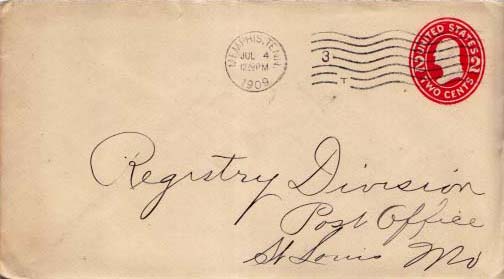 MEMPHIS, TENN.
JUL 4
12:30PM
1909
3
T
UNITED STATES
2 2
TWO CENTS
Registry Division
Post Office
St Louis Mo